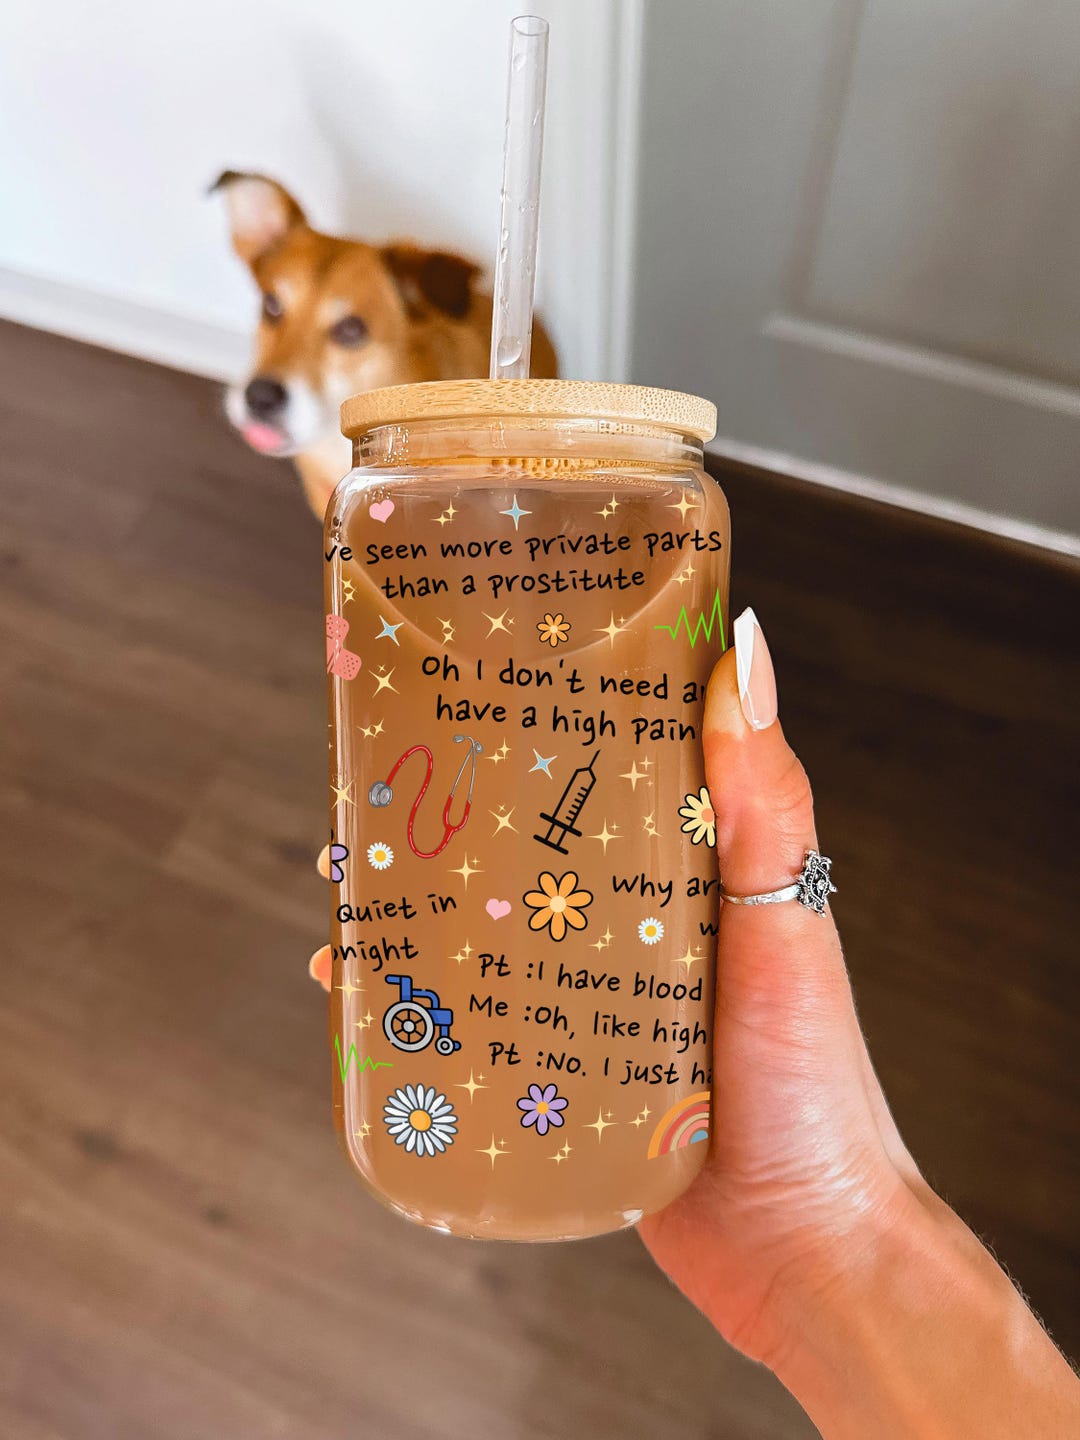 've seen more private parts
than a prostitute
Oh I don't need
have a high pain
Quiet in
Why
Pt :I have blood
Me :Oh, like high
Pt :No. I just